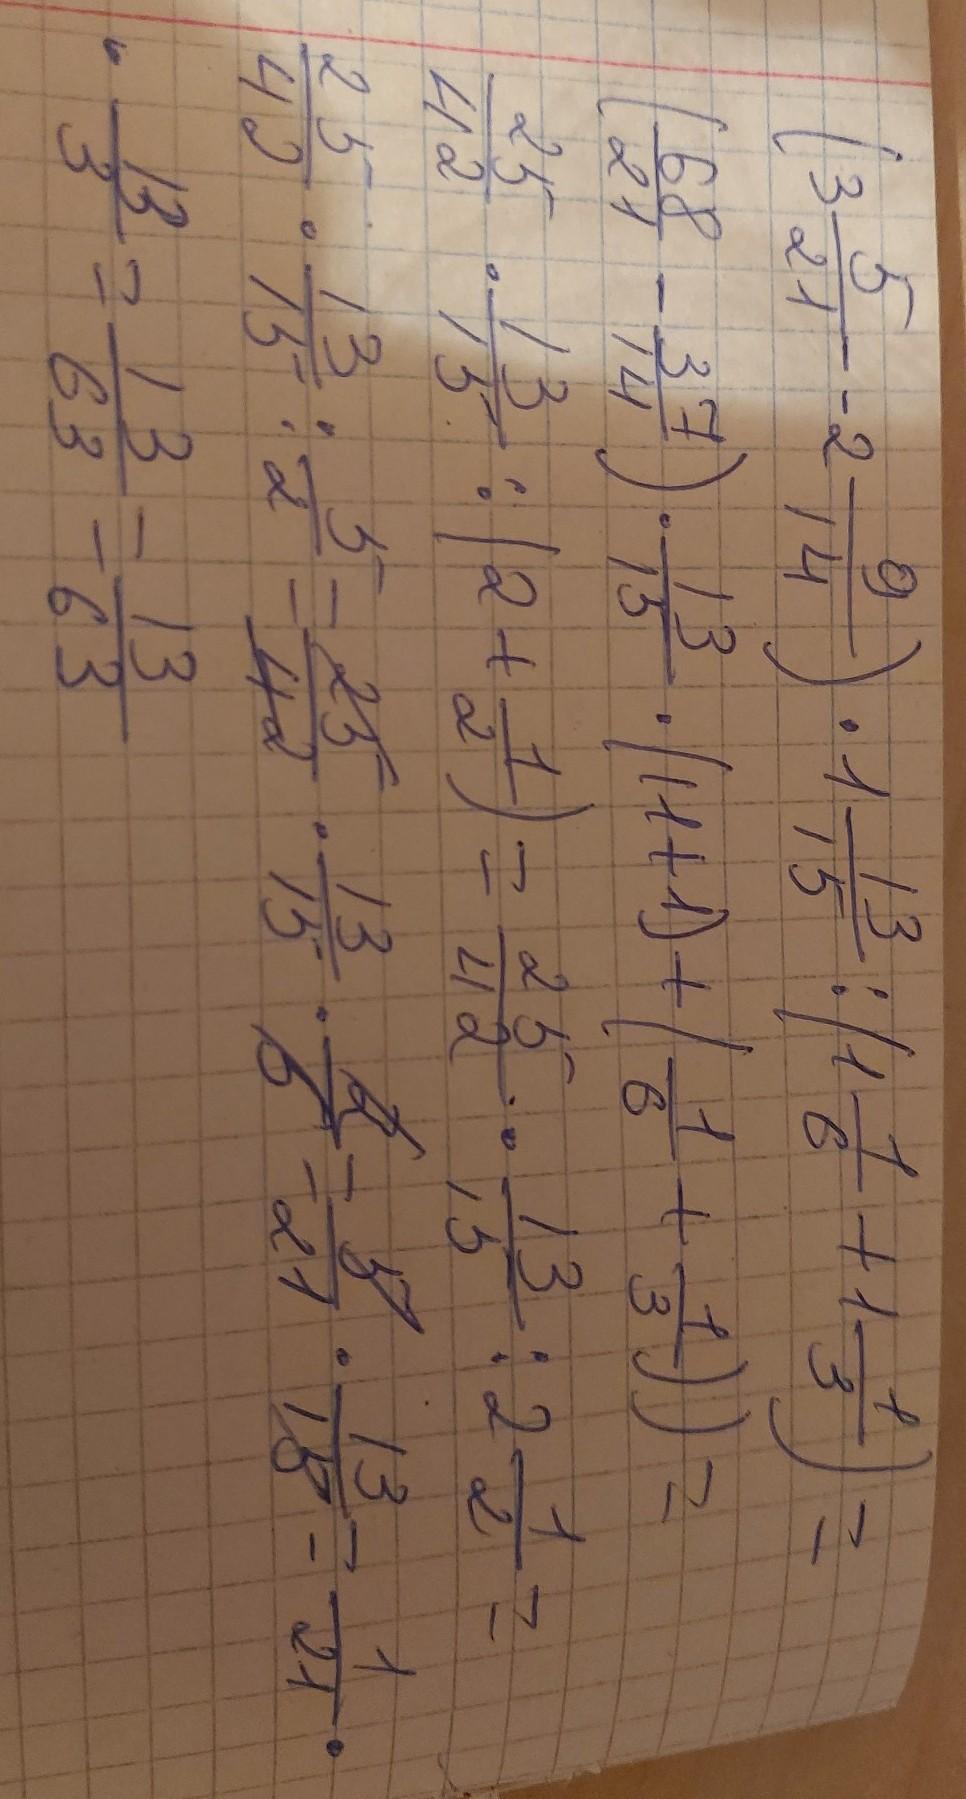 (3 5/21 - 2 9/14) · 1 13/15 : (1 1/6 + 1 1/3) =
(68/21 - 37/14) · 13/15 · ((1+1) + (1/6 + 1/3)) =
25/42 · 13/15 : (2 + 1/2) = 25/42 · 13/15 : 2 1/2 =
25/42 · 13/15 : 5/2 = 25/42 · 13/15 · 2/5 = 5/21 · 13/15 = 1/21 ·
· 13/3 = 13/63 = 13/63